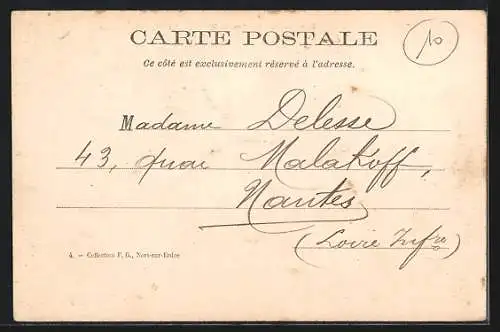 CARTE POSTALE
Ce côté est exclusivement réservé à l'adresse.
10
Madame Delesse
43, quai Malakoff,
Nantes
(Loire Infre)
4. — Collection F. G., Nort-sur-Erdre